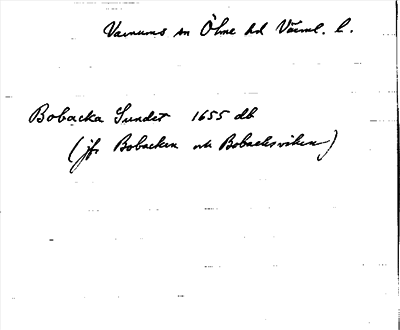 Varnums sn Ölme hd Värml. l.
Bobacka Sundet 1655 db
(jfr Bobacken och Bobacksviken)